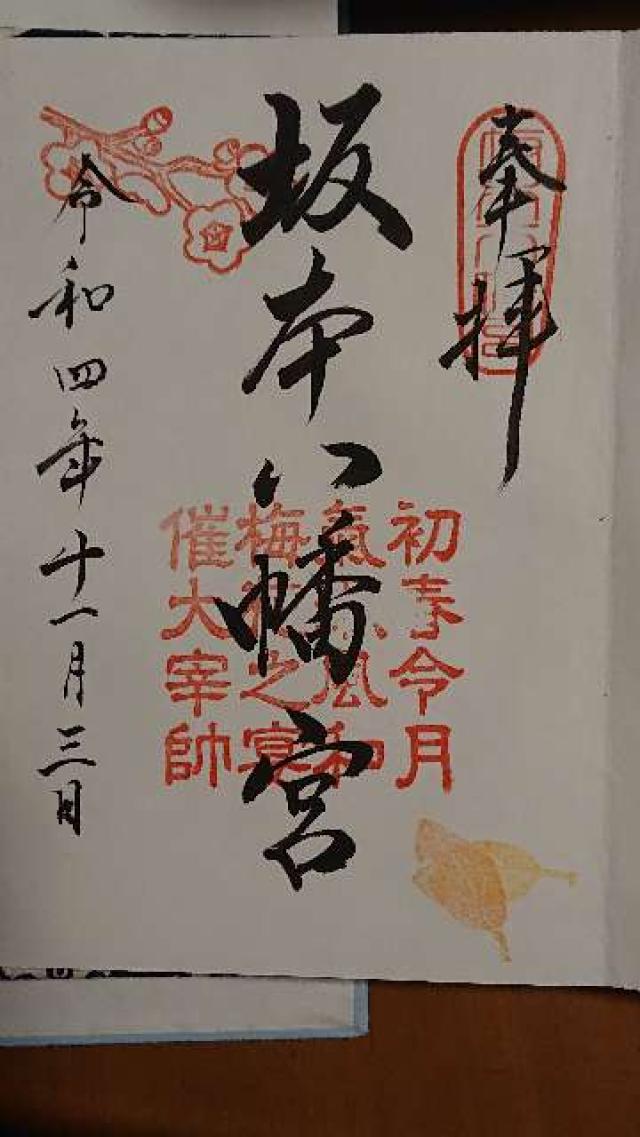 奉拝
坂本八幡宮
初春令月
氣淑風和
梅花之宴
催大宰帥
令和四年十一月三日